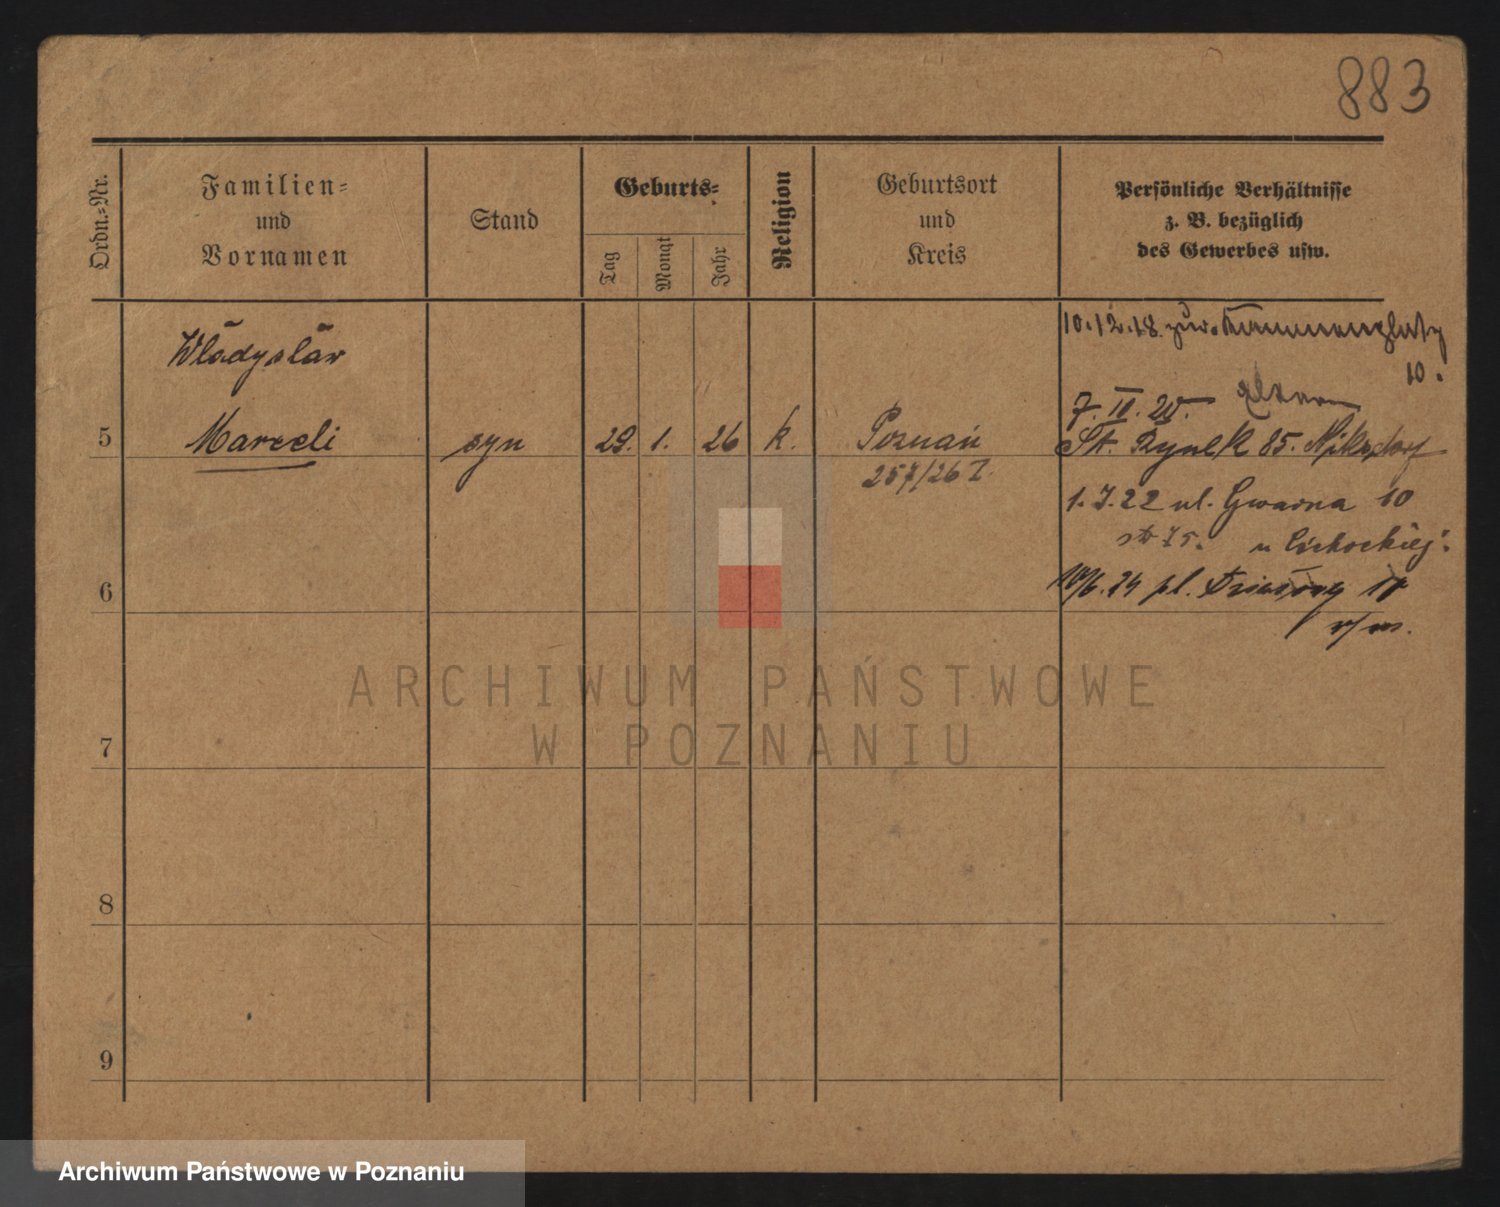 883
Ordn.=Nr.
Familien=
und
Vornamen
Stand
Geburts=
Tag
Monat
Jahr
Religion
Geburtsort
und
Kreis
Persönliche Verhältnisse
z. B. bezüglich
des Gewerbes usw.
Władysław
10.12.18. zur
10.
7. II. 20.
5 Marceli syn 29. 1. 26 k. Poznań St. Rynek 85.
257/26 I.
1.I.22 ul. Gwarna 10
u Cichockiej
6
24 pl. 10
7
8
9
ARCHIWUM PAŃSTWOWE
W POZNANIU
Archiwum Państwowe w Poznaniu